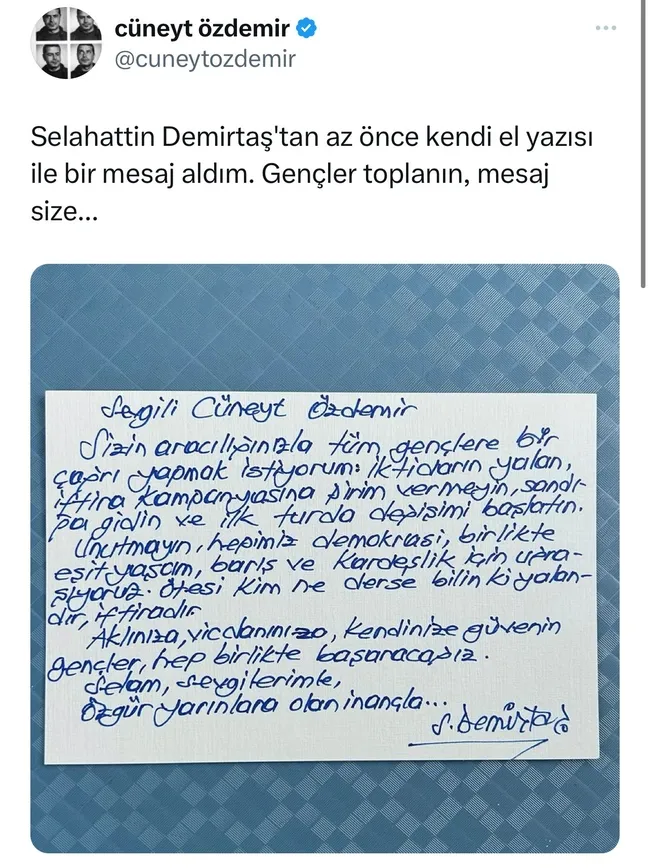 cüneyt özdemir
@cuneytozdemir
Selahattin Demirtaş'tan az önce kendi el yazısı
ile bir mesaj aldım. Gençler toplanın, mesaj
size...
Sevgili Cüneyt Özdemir
Sizin aracılığınızla tüm gençlere bir
çağrı yapmak istiyorum: iktidarın yalan,
iftira kampanyasına pirim vermeyin, sandı-
ğa gidin ve ilk turda değişimi başlatın.
Unutmayın, hepimiz demokrasi, birlikte
eşit yaşam, barış ve kardeşlik için uğra-
şıyoruz. Ötesi kim ne derse bilin ki yalan-
dır, iftiradır
Aklınıza, vicdanınıza, kendinize güvenin
gençler, hep birlikte başaracağız.
Selam, sevgilerimle,
Özgür yarınlara olan inançla...
S. Demirtaş